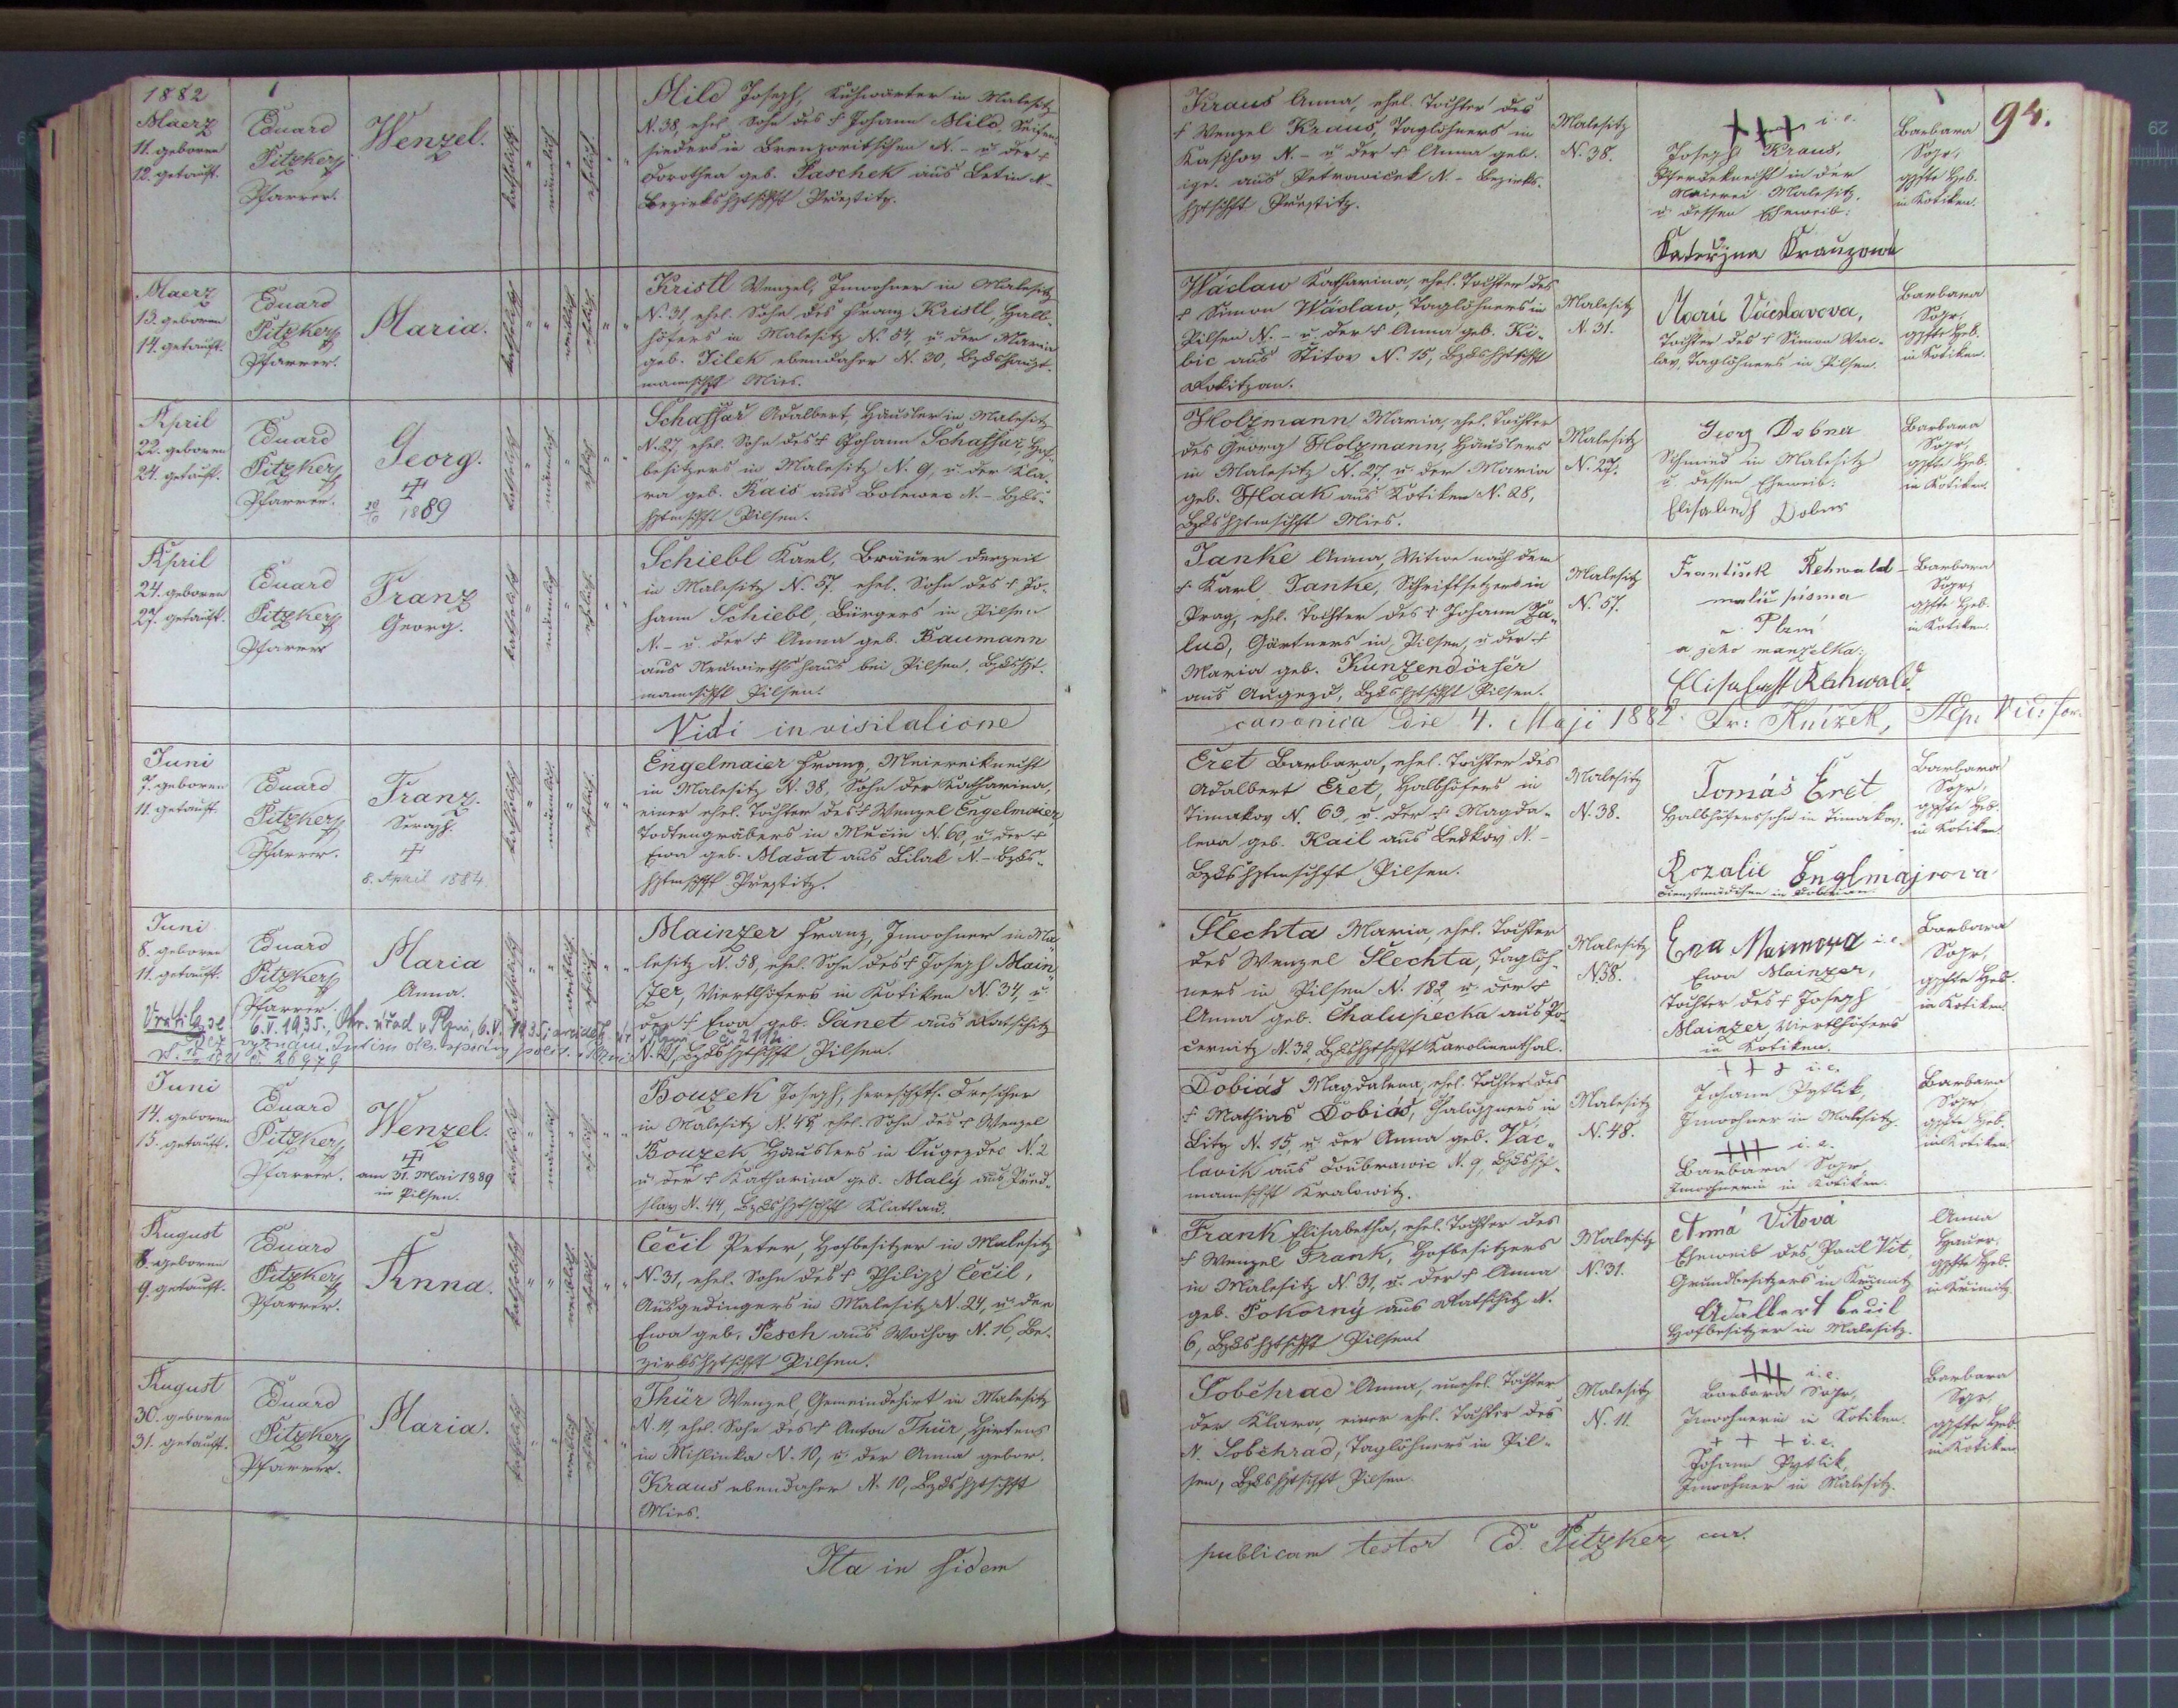 1882
Maerz
11. geboren
12. getauft.
Eduard
Pitzker,
Pfarrer.
Wenzel.
katholisch
männlich
ehelich
Milo Joseph, Kuhwärter in Malesitz
N. 38, ehel. Sohn des † Johann Milo, Seifen-
sieders in N. - u. der †
Dorothea geb. Paschek aus Letin N -
Bezirkshptschft Przestitz.
Kraus Anna, ehel. Tochter des
† Wenzel Kraus, Taglöhners in
Kaschov N. - u. der † Anna geb.
aus Petrovicek N. - Bezirks-
hptschft Przestitz.
Malesitz
N. 38.
+++ i. e.
Joseph Kraus,
Pferdeknecht in der
Maierei Malesitz,
u. dessen Eheweib:
Kateřzina Krauzowa
Barbara
Sopr,
gpfte Heb.
in Kotiken.
94.
Maerz
13. geboren
14. getauft.
Eduard
Pitzker,
Pfarrer.
Maria.
katholisch
weiblich
ehelich
Kristl Wenzel, Inwohner in Malesitz
N. 31 ehel. Sohn des Franz Kristl, Halb-
höfers in Malesitz N. 54, u. der Maria
geb. Jilek ebendaher N. 30, Bzkshaupt-
mannschft Mies.
Wáclaw Katharina, ehel. Tochter des
† Simon Wáclaw, Taglöhners in
Pilsen N. - u. der † Anna geb. Ki-
bic aus Stitov N. 15, Bzkshptschft
Rokitzan.
Malesitz
N. 31.
Marie Václavova,
Tochter des † Simon Vac-
lav, Taglöhners in Pilsen.
Barbara
Sopr,
gpfte Heb.
in Kotiken.
April
22. geboren
24. getauft.
Eduard
Pitzker,
Pfarrer.
Georg.
†
1889
katholisch
männlich
ehelich
Schaffar Adalbert, Häusler in Malesitz
N. 27, ehel. Sohn des † Johann Schaffar, Hof-
besitzers in Malesitz N. 9, u. der Kla-
ra geb. Kais aus Bolewec N. - Bzks-
hptmschft Pilsen.
Holzmann Maria, ehel. Tochter
des Georg Holzmann, Häuslers
in Malesitz N. 27, u. der Maria
geb. Haak aus Kotiken N. 28,
Bzkshptmschft Mies.
Malesitz
N. 27.
Georg Dobner
Schmied in Malesitz
u. dessen Eheweib:
Elisabeth Dobner
Barbara
Sopr,
gpfte Heb.
in Kotiken.
April
24. geboren
27. getauft.
Eduard
Pitzker,
Pfarrer
Franz
Georg.
katholisch
männlich
ehelich
Schiebl Karl, Bräuer derzeit
in Malesitz N. 57. ehel. Sohn des † Jo-
hann Schiebl, Bürgers in Pilsen
N. - u. der † Anna geb. Baumann
aus Neuwirthshaus bei Pilsen, Bzkshpt-
mannschft Pilsen.
Janke Anna, Witwe nach dem
† Karl Janke, Schriftsetzers in
Prag, ehel. Tochter des † Johann Za-
lud, Gärtners in Pilsen, u. der †
Maria geb. Kunzendörfer
aus Augezd, Bzkshptschft Pilsen.
Malesitz
N. 57.
František Rehwald
malíř písma
v Plzni
a jeho manzelka:
Elisabeth Rehwald.
Barbara
Sopr,
gpfte Heb.
in Kotiken.
Vidi in visitatione
canonica die 4. Maji 1882. Fr: Knížek,
Juni
7. geboren
11. getauft.
Eduard
Pitzker,
Pfarrer.
Franz.
Seraph.
†
8. April 1884
katholisch
männlich
ehelich
Engelmaier Franz, Maiereiknecht
in Malesitz N. 38, Sohn der Katharina,
einer ehel. Tochter des † Wenzel Engelmaier,
Todtengräbers in Mecin N. 60, u. der †
Ewa geb. Mašat aus Bilak N. - Bzks-
hptmschft Przestitz.
Eret Barbara, ehel. Tochter des
Adalbert Eret, Halbhöfers in
Timakov N. 63, u. der † Magda-
lena geb. Kail aus Letkov N. -
Bzkshptmschft Pilsen.
Malesitz
N. 38.
Tomáš Eret
Halbhöferssohn in Timakov.
Rozalie Englmajrova
Dienstmädchen in
Barbara
Sopr,
gpfte Heb.
in Kotiken
Juni
8. geboren
11. getauft.
Eduard
Pitzker,
Pfarrer.
Maria
Anna.
katholisch
weiblich
ehelich
Mainzer Franz, Inwohner in Ma-
lesitz N. 58, ehel. Sohn des † Joseph Main-
zer, Viertlhöfers in Kotiken N. 34, u.
der † Ewa geb. Sanet aus Ratschitz
N. 2, Bzkshptschft Pilsen.
6. V. 1935., Okr. úřad v Plzni, 6. V. 1935,
č. 26979
Slechta Maria, ehel. Tochter
des Wenzel Slechta, Taglöh-
ners in Pilsen N. 182, u. der †
Anna geb. Chalupecka aus Po-
cernitz N. 32, Bzkshptschft Karolinenthal.
Malesitz
N. 58.
Eva i. e.
Ewa Mainzer,
Tochter des † Joseph
Mainzer, Viertlhöfers
in Kotiken.
Barbara
Sopr,
gpfte Heb.
in Kotiken.
Juni
14. geboren
15. getauft.
Eduard
Pitzker,
Pfarrer.
Wenzel.
†
am 31. Mai 1889
in Pilsen.
katholisch
männlich
ehelich
Bouzek Joseph, herrschftl. Drescher
in Malesitz N. 48, ehel. Sohn des † Wenzel
Bouzek Häuslers in Augezdec N. 2
u. der † Katharina geb. Malý aus Pred-
slav N. 44, Bzkshptschft Klattau.
Dobiás Magdalena, ehel. Tochter des
† Mathias Dobiáš, Chaluppners in
Bitz N. 15, u. der Anna geb. Vác-
lavik aus Doubrawic N. 9, Bzkshpt-
mannschft Kralowitz.
Malesitz
N. 48.
+ + + i. e.
Johann Pytlik,
Inwohner in Malesitz.
+++ i. e.
Barbara Sopr,
Inwohnerin in Kotiken.
Barbara
Sopr
gpfte Heb.
in Kotiken.
August
8. geboren
9. getauft.
Eduard
Pitzker,
Pfarrer.
Anna.
katholisch
weiblich
ehelich
Cečil Peter, Hofbesitzer in Malesitz
N. 31, ehel. Sohn des † Philipp Cečil,
Ausgedingers in Malesitz N. 24, u. der
Ewa geb. Pesch aus Wochov N. 16 Be-
zirkshptschft Pilsen.
Frank Elisabetha, ehel. Tochter des
† Wenzel Frank, Hofbesitzers
in Malesitz N. 31, u. der † Anna
geb. Pokorny aus Ratschitz N.
6, Bzkshptschft Pilsen
Malesitz
N. 31.
Anna Vitová
Eheweib des Paul Vit,
Grundbesitzers in Krimitz
Adalbert Cecil
Hofbesitzer in Malesitz.
Anna
Hauer,
gpfte Heb.
in Krimitz
August
30. geboren
31. getauft.
Eduard
Pitzker,
Pfarrer.
Maria.
katholisch
weiblich
ehelich
Thür Wenzel, Gemeindehirt in Malesitz
N. 11, ehel. Sohn des † Anton Thür, Hirtens
in Mislinka N. 10, u. der Anna gebor.
Kraus ebendaher N. 10, Bzkshptschft
Mies.
Soběhrad Anna, unehel. Tochter
der Klara, einer ehel. Tochter des
N. Soběhrad, Taglöhners in Pil-
sen, Bzkshptschft Pilsen.
Malesitz
N. 11.
+++ i. e.
Barbara Sopr,
Inwohnerin in Kotiken.
+ + + i. e.
Johann Pytlik,
Inwohner in Malesitz.
Barbara
Sopr,
gpfte Heb.
in Kotiken
Ita in fidem
publicam testor Ed. Pitzker cur.